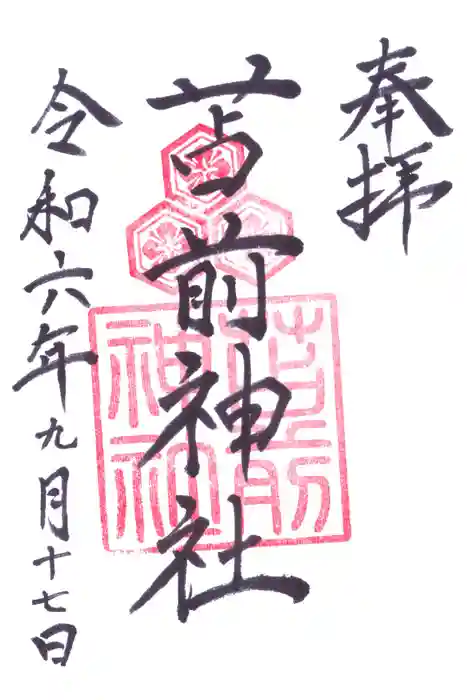 奉拝
苫前神社
苫前
神社
令和六年九月十七日